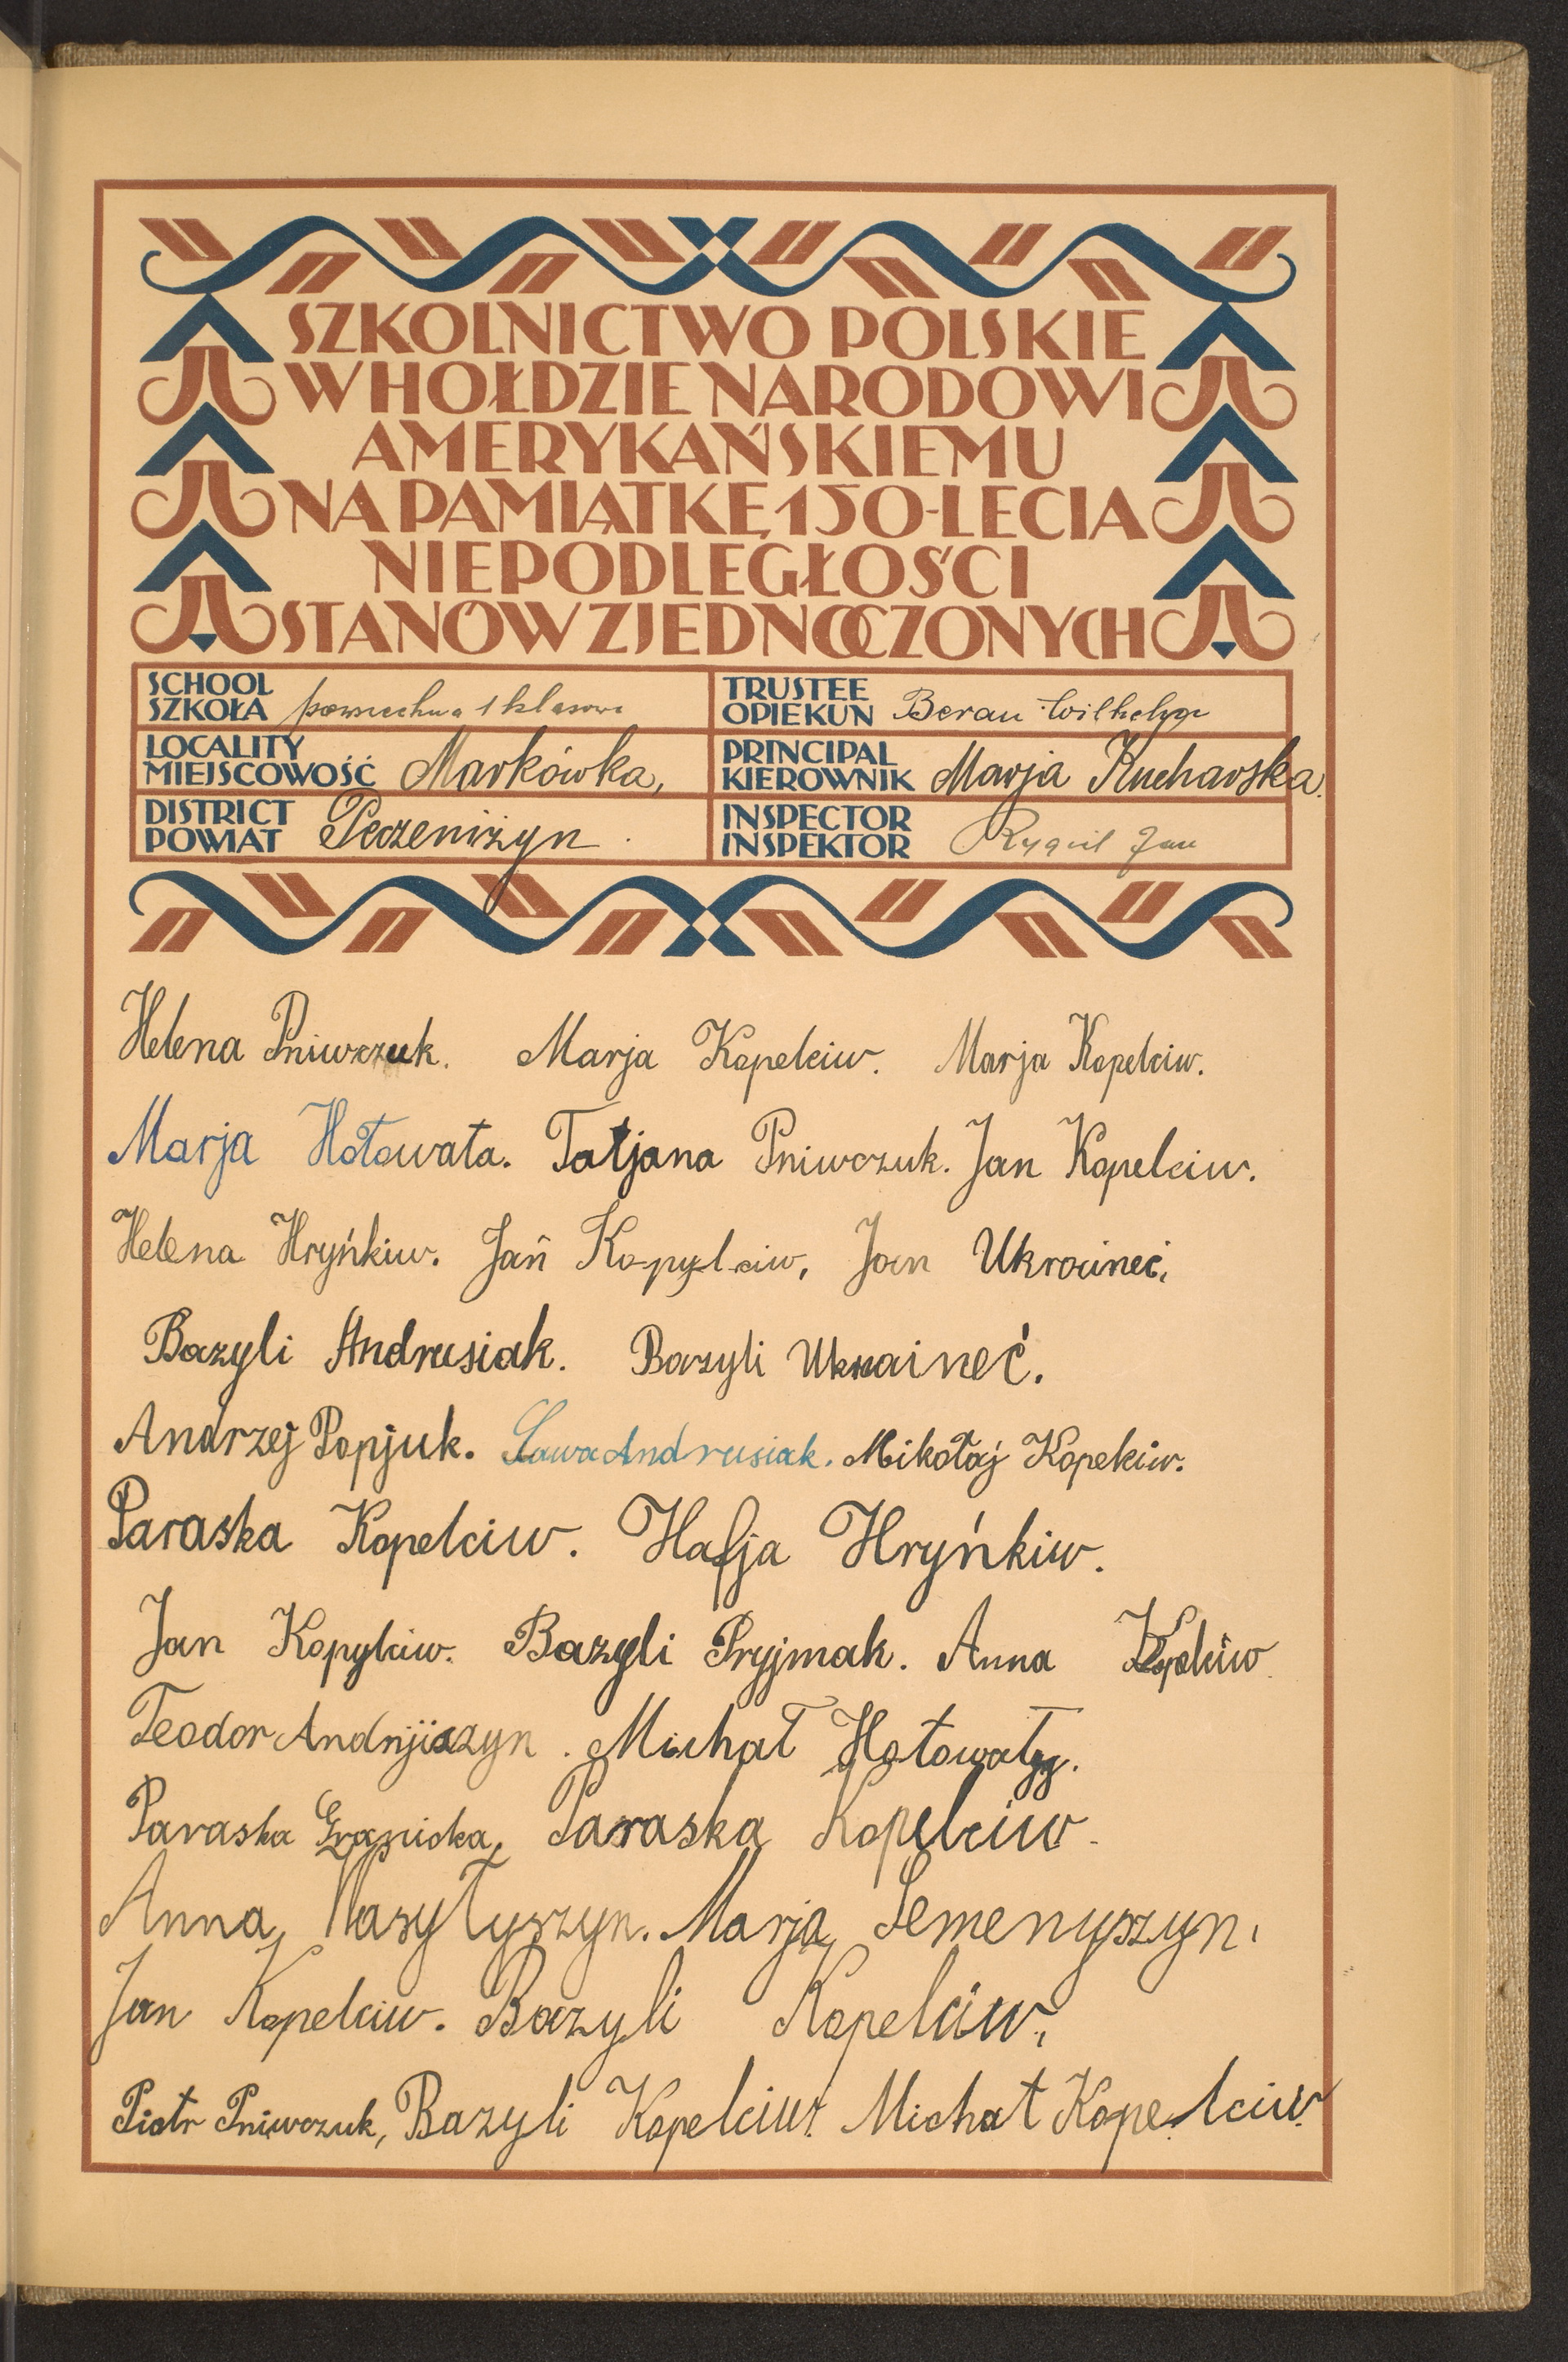 SZKOLNICTWO POLSKIE
W HOŁDZIE NARODOWI
AMERYKAŃSKIEMU
NA PAMIĄTKĘ 150-LECIA
NIEPODLEGŁOŚCI
STANÓW ZJEDNOCZONYCH
SCHOOL
SZKOŁA powszechna 1 klasowa
TRUSTEE
OPIEKUN Beran Wilhelm
LOCALITY
MIEJSCOWOŚĆ Markówka,
PRINCIPAL
KIEROWNIK Marja Kucharska.
DISTRICT
POWIAT Peczeniżyn.
INSPECTOR
INSPEKTOR Jan
Helena Pniwczuk. Marja Kopelciw. Marja Kopelciw.
Marja Hołowata. Tatjana Pniwczuk. Jan Kopelciw.
Helena Hryńkiw. Jan Kopylciw, Jan Ukraineć.
Bazyli Andrusiak. Bazyli Ukraineć.
Andrzej Popjuk. Sawa Andrusiak. Mikołaj Kopelciw.
Paraska Kopelciw. Hafja Hryńkiw.
Jan Kopylciw. Bazyli Pryjmak. Anna Kopelciw
Teodor Michał Hołowaty.
Paraska Paraska Kopelciw.
Anna Wasyłyszyn. Marja Semenyszyn.
Jan Kopelciw. Bazyli Kopelciw,
Piotr Pniwczuk, Bazyli Kopelciw. Michał Kopelciw.